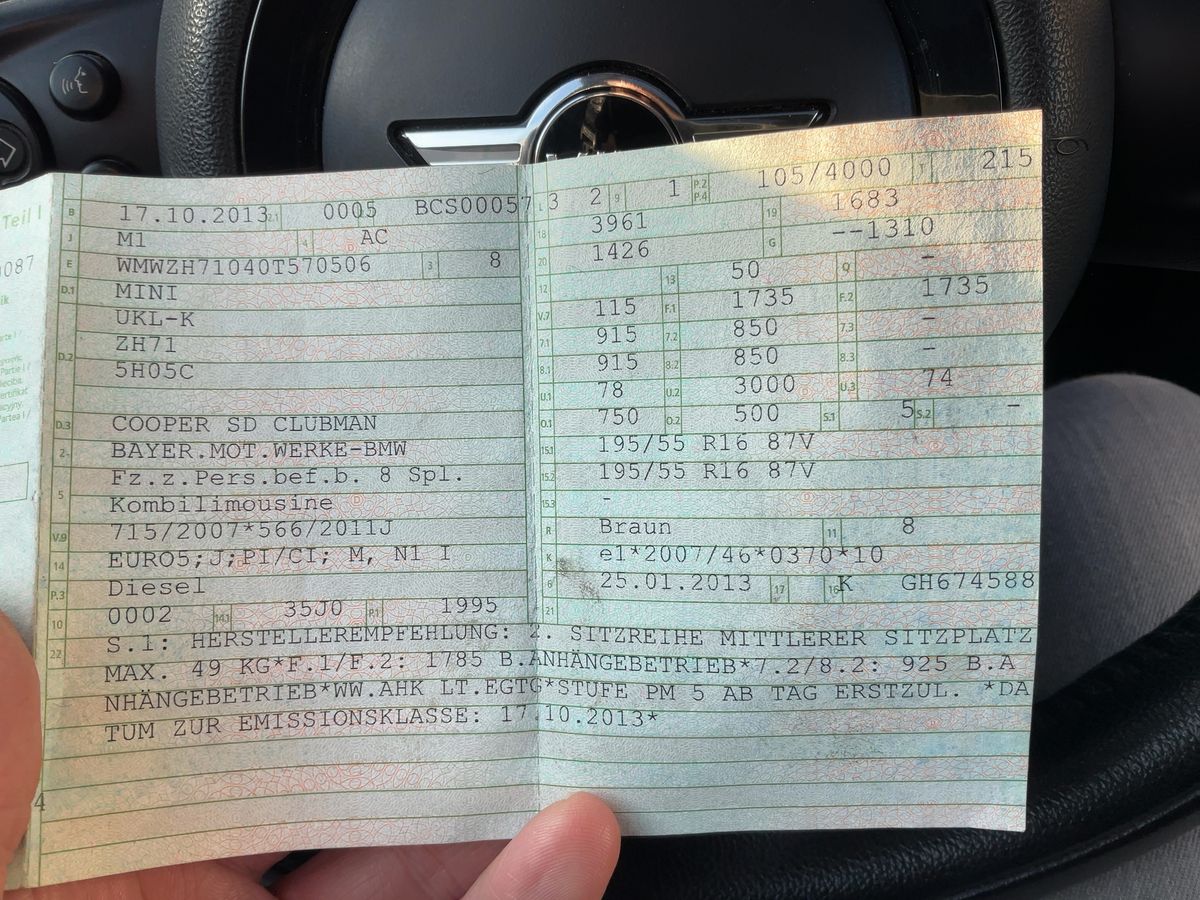 Teil I
087
B 17.10.2013 2.1 0005 BCS00057 3
J M1 4 AC
E WMWZH71040T570506 3 8
D.1 MINI
UKL-K
ZH71
D.2 5H05C
D.3 COOPER SD CLUBMAN
2 BAYER.MOT.WERKE-BMW
Fz.z.Pers.bef.b. 8 Spl.
5 Kombilimousine
V.9 715/2007*566/2011J
14 EURO5;J;PI/CI; M, N1 I
P.3 Diesel
10 0002 14.1 35J0 P.1 1995
L 2 9 1 P.2 P.4 105/4000 T 215
18 3961 19 1683
20 1426 G --1310
12 13 50 Q -
V.7 115 F.1 1735 F.2 1735
7.1 915 7.2 850 7.3 -
8.1 915 8.2 850 8.3 -
U.1 78 U.2 3000 U.3 74
O.1 750 O.2 500 S.1 5 S.2 -
15.1 195/55 R16 87V
15.2 195/55 R16 87V
15.3 -
R Braun 11 8
K e1*2007/46*0370*10
6 25.01.2013 17 K 16 GH674588
21
22 S.1: HERSTELLEREMPFEHLUNG: 2. SITZREIHE MITTLERER SITZPLATZ
MAX. 49 KG*F.1/F.2: 1785 B.ANHÄNGEBETRIEB*7.2/8.2: 925 B.A
NHÄNGEBETRIEB*WW.AHK LT.EGTG*STUFE PM 5 AB TAG ERSTZUL. *DA
TUM ZUR EMISSIONSKLASSE: 17.10.2013*
4